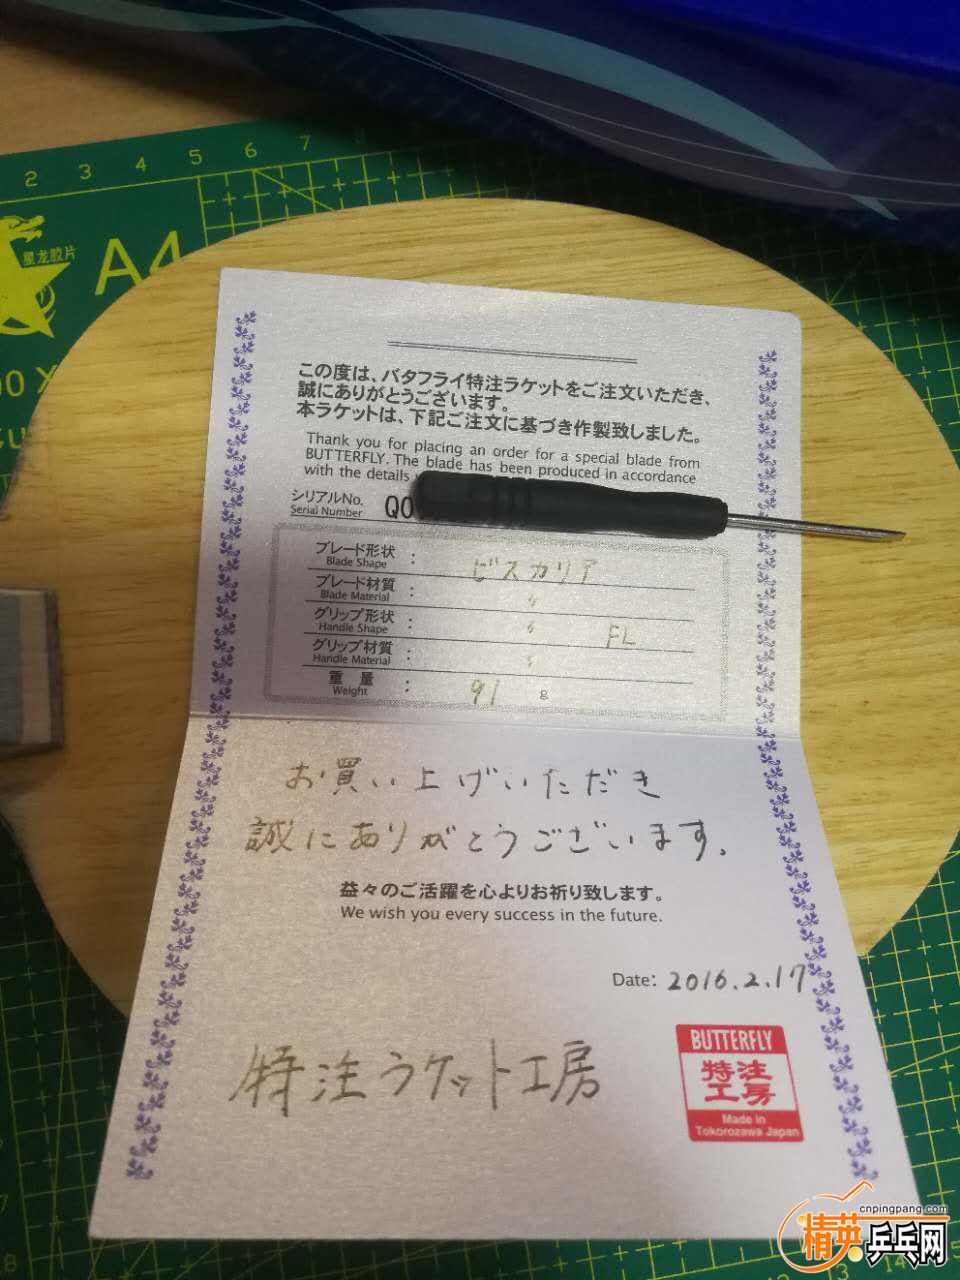 2 3 4 5 6 7 8
星龙胶片
A4
この度は、バタフライ特注ラケットをご注文いただき、
誠にありがとうございます。
本ラケットは、下記ご注文に基づき作製致しました。
Thank you for placing an order for a special blade from
BUTTERFLY. The blade has been produced in accordance
with the details
シリアルNo.
Serial Number Q0
ブレード形状 : ビスカリア
Blade Shape
ブレード材質 : 〃
Blade Material
グリップ形状 : 〃 FL
Handle Shape
グリップ材質 : 〃
Handle Material
重量 : 91 g
Weight
お買い上げいただき
誠にありがとうございます。
益々のご活躍を心よりお祈り致します。
We wish you every success in the future.
Date: 2016.2.17
特注ラケット工房
BUTTERFLY
特注
工房
Made in
Tokorozawa Japan
cnpingpang.com
精英乒乓网